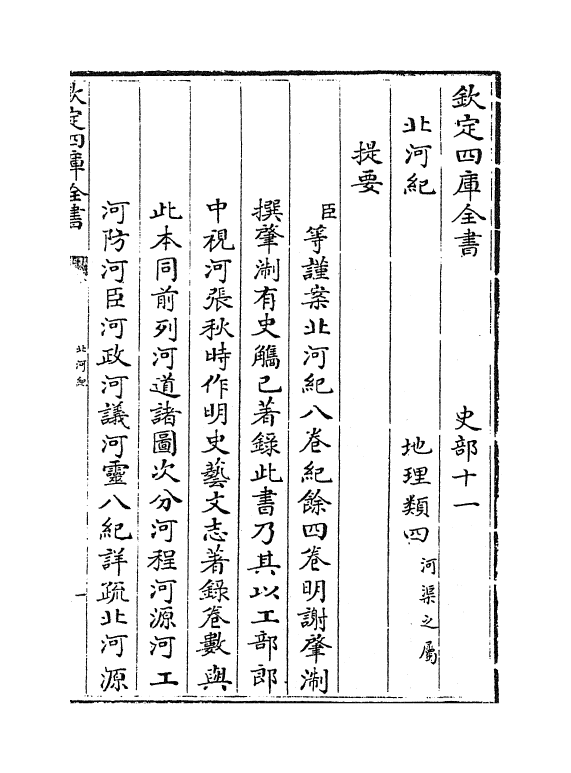 欽定四庫全書　史部十一
北河紀　地理類四河渠之屬
提要
臣等謹案北河紀八卷紀餘四卷明謝肇淛
撰肇淛有史觿已著錄此書乃其以工部郎
中視河張秋時作明史藝文志著錄卷數與
此本同前列河道諸圖次分河程河源河工
河防河臣河政河議河靈八紀詳疏北河源
欽定四庫全書　北河紀　一